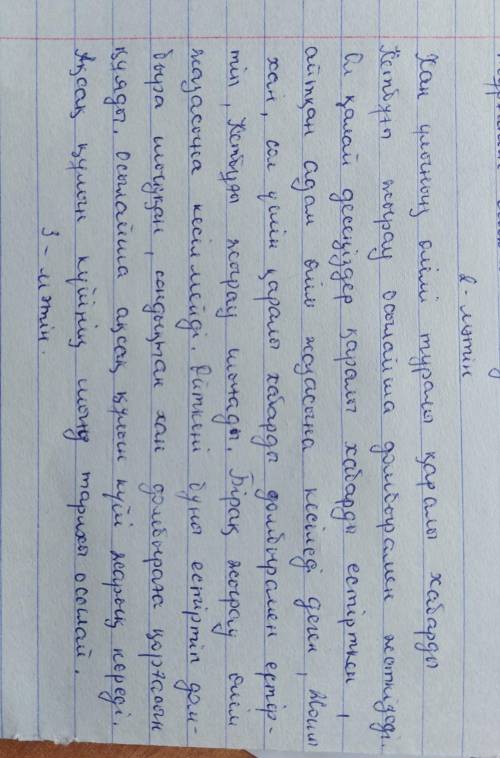 2 - мәтін
Хан ұлының өлімі туралы қаралы хабарды
Кетбұғы жырау осылайша домбырамен жеткізеді.
Ол қалай десеңіздер қаралы хабарды естірткен,
айтқан адам өлім жазасына кесіледі деген, Жошы
хан, сол үшін қаралы хабарды домбырамен естір-
тіп, Кетбұғы жырау шығады. Бірақ жырау өлім
жазасына кесілмейді. Өйткені бұны естіртіп дом-
быра шыққан, сондықтан хан домбыраға қорғасын
құяды. Осылайша ақсақ құлын күйі жарық көреді.
Ақсақ құлын күйінің шығу тарихы осылай.
3 - мәтін.